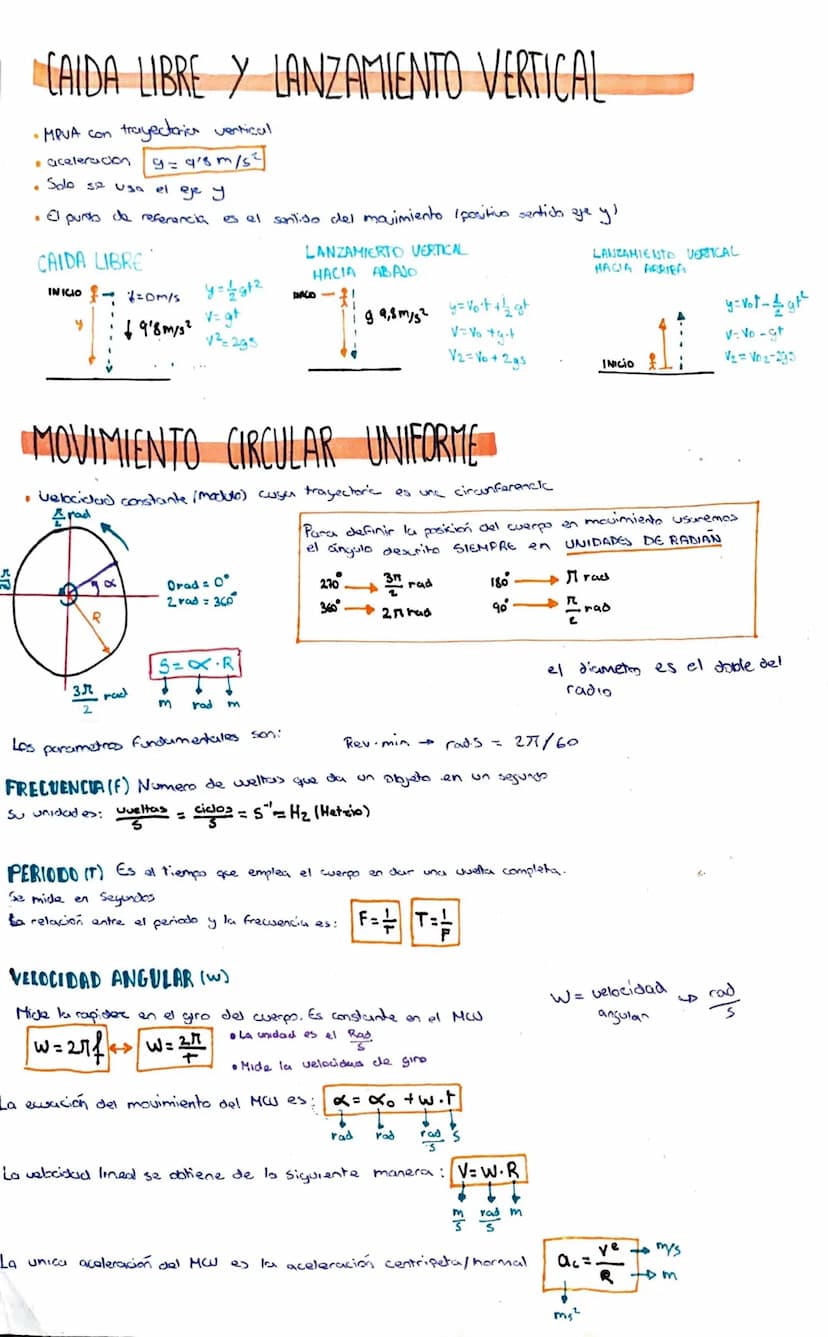 CAIDA LIBRE Y LANZAMIENTO VERTICAL
• MRUA con trayectoria vertical
• aceleración g = 9'8 m/s²
• Solo se usa el eje y
• El punto de referencia es el sentido del movimiento (positivo sentido eje y)
CAIDA LIBRE
INICIO
y
↓ 9'8m/s²
y=½gt²
V=gt
V²=2gs
LANZAMIENTO VERTICAL
HACIA ABAJO
INICIO
g 9,8m/s²
y=V₀t+½gt
V=V₀+g·t
V₂=V₀+2gs
LANZAMIENTO VERTICAL
HACIA ARRIBA
INICIO
y=V₀t-½gt²
V=V₀-gt
V₂=V₀₂-2gs
MOVIMIENTO CIRCULAR UNIFORME
• Velocidad constante (modulo) cuya trayectoria es una circunferencia
π/2 rad
α
R
3π/2 rad
0 rad = 0°
2 rad = 360°
S = α · R
m rad m
Para definir la posición del cuerpo en movimiento usaremos
el ángulo descrito SIEMPRE en UNIDADES DE RADIAN
270° → 3π/2 rad 180° → π rad
360° → 2π rad 90° → π/2 rad
el diametro es el doble del
radio
Los parametros fundamentales son:
Rev·min → rad·s = 2π/60
FRECUENCIA (F) Numero de vueltas que da un objeto en un segundo
Su unidad es: vueltas/s = ciclos/s = s⁻¹ = Hz (Hetzio)
PERIODO (T) Es el tiempo que emplea el cuerpo en dar una vuelta completa.
Se mide en Segundos
La relación entre el periodo y la frecuencia es: F=1/T T=1/F
VELOCIDAD ANGULAR (W)
W = velocidad angular → rad/s
Mide la rapidez en el giro del cuerpo. Es constante en el MCU
W=2πf ↔ W=2π/T
• La unidad es el Rad/s
• Mide la velocidad de giro
La ecuación del movimiento del MCU es: α = α₀ + w·t
rad rad rad/s s
La velocidad lineal se obtiene de la siguiente manera: V=W·R
m/s rad/s m
La unica aceleración del MCU es la aceleración centripeta/normal ac = v²/R → m/s → m
ms²